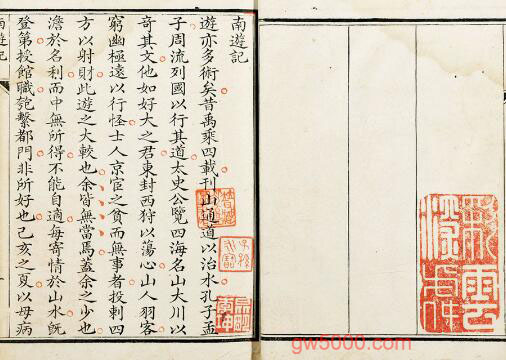 南遊記
遊亦多術矣昔禹乘四載刊山通道以治水孔子孟
子周流列國以行其道太史公覽四海名山大川以
奇其文他如好大之君東封西狩以蕩心山人羽客
窮幽極遠以行怪士人京宦之貧而無事者投刺四
方以射財此遊之大較也余皆無當焉蓋余之少也
澹於名利而中無所得不能自適每寄情於山水既
登第授館職匏繫都門非所好也己亥之夏以母病
南遊記
gw5000.com